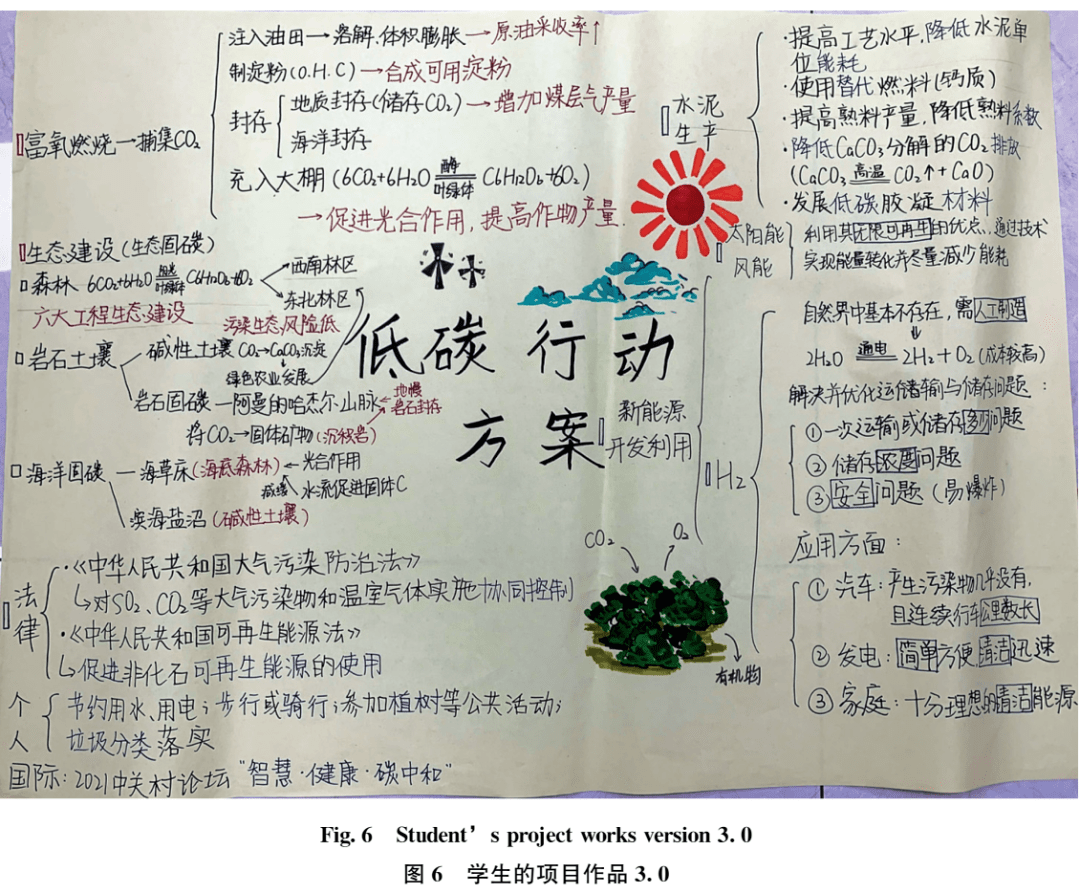 注入油田→溶解、体积膨胀→原油采收率↑
制淀粉(O.H.C)→合成可用淀粉
富氧燃烧→捕集CO₂
封存
地质封存(储存CO₂)→增加煤层气产量
海洋封存
充入大棚(6CO₂+6H₂O 酶 叶绿体 C₆H₁₂O₆+6O₂)
→促进光合作用,提高作物产量
生态建设(生态固碳)
森林 6CO₂+6H₂O 叶绿体 C₆H₁₂O₆+6O₂
西南林区
东北林区
六大工程生态建设
污染生态风险低
岩石土壤
碱性土壤 CO₂→CaCO₃沉淀
绿色农业发展
岩石固碳—阿曼的哈杰尔山脉←地幔岩石封存
将CO₂→固体矿物(沉积岩)
海洋固碳—海草床(海底森林)←光合作用
减缓水流促进固体C
滨海盐沼(碱性土壤)
法律
·《中华人民共和国大气污染防治法》
↳对SO₂、CO₂等大气污染物和温室气体实施协同控制
·《中华人民共和国可再生能源法》
↳促进非化石可再生能源的使用
个人
节约用水、用电;步行或骑行;参加植树等公共活动;
垃圾分类落实
国际:2021中关村论坛“智慧·健康·碳中和”
低碳行动
方案
水泥生产
·提高工艺水平,降低水泥单
位能耗
·使用替代燃料(钙质)
·提高熟料产量,降低熟料系数
·降低CaCO₃分解的CO₂排放
(CaCO₃ 高温 CO₂↑+CaO)
·发展低碳胶凝材料
新能源
开发利用
太阳能
风能
利用其无限可再生的优点,通过技术
实现能量转化并尽量减少能耗
H₂
自然界中基本不存在,需人工制造
2H₂O 通电 2H₂+O₂(成本较高)
解决并优化运储输与储存问题:
①一次运输或储存多问题
②储存浓度问题
③安全问题(易爆炸)
应用方面:
①汽车:产生污染物几乎没有,
且连续行车公里数长
②发电:简单方便清洁迅速
③家庭:十分理想的清洁能源
CO₂
O₂
有机物
Fig. 6 Student's project works version 3.0
图 6 学生的项目作品 3.0